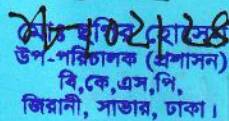 মোঃ মুনির হোসেন
উপ-পরিচালক (প্রশাসন)
বি,কে,এস,পি,
জিরানী, সাভার, ঢাকা।